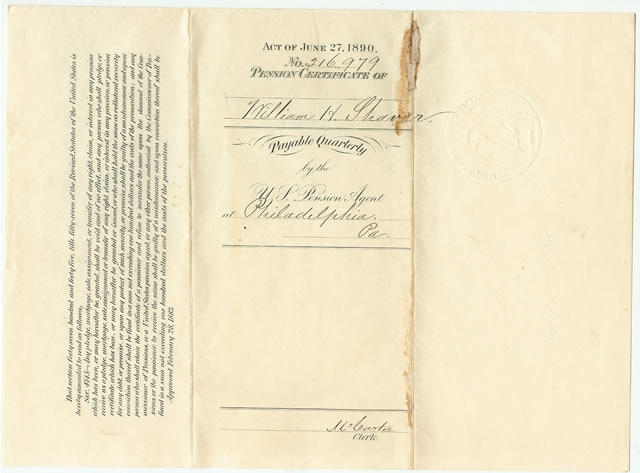 That section forty-seven hundred and forty-five, title fifty-seven of the Revised Statutes of the United States is
hereby amended to read as follows:
Sec. 4745.—Any pledge, mortgage, sale, assignment, or transfer of any right, claim, or interest in any pension
which has been, or may hereafter be granted, shall be void and of no effect, and any person who shall pledge, or
receive as a pledge, mortgage, sale, assignment or transfer of any right, claim, or interest in any pension, or pension
certificate which has been, or may hereafter be granted or issued, or who shall hold the same as collateral security
for any debt, or promise, or upon any pretext of such security, or promise, shall be guilty of a misdemeanor, and upon
conviction thereof shall be fined in a sum not exceeding one hundred dollars and the costs of the prosecution; and any
person who shall retain the certificate of a pensioner and refuse to surrender the same upon the demand of the Com-
missioner of Pensions, or a United States pension agent, or any other person, authorized by the Commissioner of Pen-
sions, or the pensioner, to receive the same shall be guilty of a misdemeanor, and upon conviction thereof shall be
fined in a sum not exceeding one hundred dollars and the costs of the prosecution.
Approved February 28, 1883.
ACT OF JUNE 27, 1890.
No. 216,979
PENSION CERTIFICATE OF
William H. Shaver.
Payable Quarterly
by the
U.S. Pension Agent
at Philadelphia,
Pa.
Clerk.